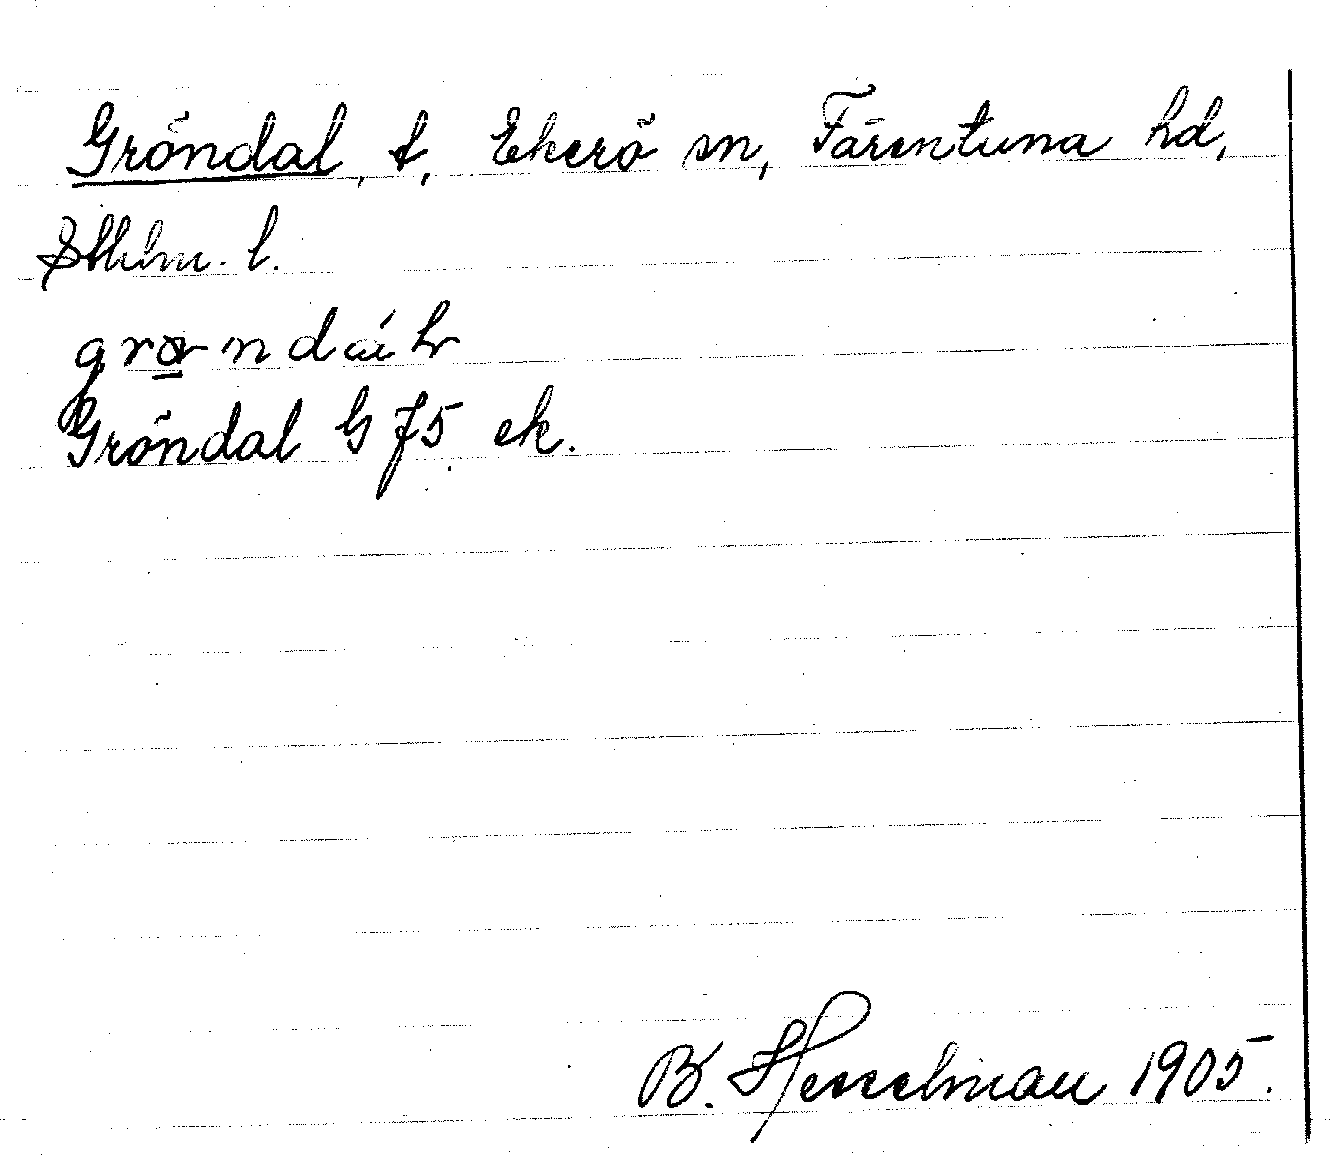 Gröndal, t, Ekerö sn, Färentuna hd,
Sthlm. l.
Gröndal G 75 ek.
B. Hesselman 1905.